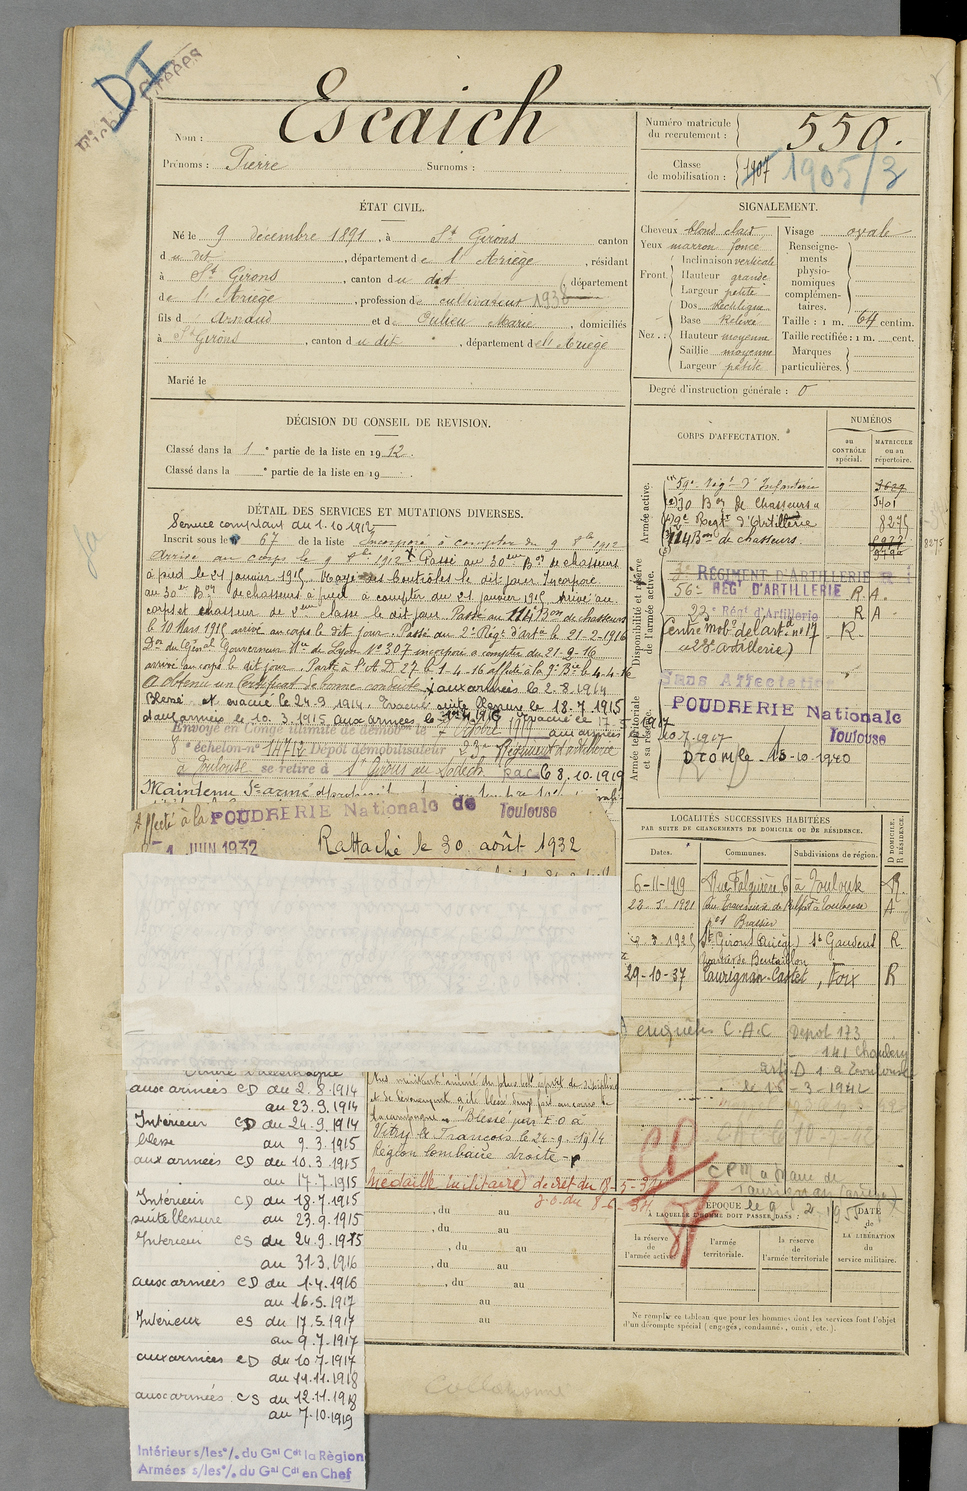 DI
Escaich
Nom :
Prénoms : Pierre Surnoms :
Numéro matricule du recrutement : 550.
Classe de mobilisation : 1907 1905/3
ÉTAT CIVIL.
Né le 9 décembre 1891, à St Girons canton
du dit, département de l'Ariège, résidant
à St Girons, canton du dit, département
de l'Ariège, profession de cultivateur 1938
fils d Arnaud et de Marie, domiciliés
à St Girons, canton du dit, département de l'Ariège
Marié le
SIGNALEMENT.
Cheveux blond clair
Yeux marron foncé
Front. Inclinaison verticale
Hauteur grande
Largeur petite
Nez. : Dos rectiligne
Base Relevée
Hauteur moyenne
Saillie moyenne
Largeur petite
Visage ovale
Renseignements physionomiques complémentaires.
Taille : 1 m. 64 centim.
Taille rectifiée : 1 m. cent.
Marques particulières.
Degré d'instruction générale : 0
DÉCISION DU CONSEIL DE REVISION.
Classé dans la 1e partie de la liste en 1912.
Classé dans la e partie de la liste en 19
DÉTAIL DES SERVICES ET MUTATIONS DIVERSES.
Service comptant du 1.10.1912
Inscrit sous le n° 67 de la liste Incorporé à compter du 9 8bre 1912
Arrivé au corps le 9 8bre 1912 Passé au 30eme Bon de chasseurs
à pied le 21 janvier 1915 Rayé des Contrôles le dit jour Incorporé
au 30e Bon de chasseurs à pied à compter du 21 janvier 1915 Arrivé au
corps et chasseur de 2eme classe le dit jour. Passé au 114e Bon de chasseurs
le 10 Mars 1915 arrivé au corps le dit jour. Passé au 2e Régt d'artie le 21-2-1916
Don du Général Gouverneur Mre de Lyon No 307 incorporé à compter du 21-2-16
arrivé au corps le dit jour. Parti à l'A D 27 le 1-4-16 affecté à la Bie le 4-4-16
A obtenu un Certificat de bonne conduite aux armées le 2.8.1914
Blessé et évacué le 24.9.1914, Evacué suite blessure le 18.7.1915
aux armées le 10.3.1915 aux armées le 1.4.1916 évacué le 17.5.1917
Envoyé en Congé illimité de démob. le 7 octobre 1919 aux armées 10-7-1917
8e échelon-n° 14712 Dépôt démobilisateur 23e Régiment d'artillerie
à Toulouse se retire à St Girons RAC le 8.10.1919
Affecté à la POUDRERIE Nationale de Toulouse
1 JUIN 1932 Rattaché le 30 août 1932
CORPS D'AFFECTATION.
NUMÉROS
au CONTRÔLE spécial.
MATRICULE ou au répertoire.
Armée active.
59e Régt d'Infanterie
30 Bon de Chasseurs 5401
2e Regt d'Artillerie 8275
114 Bon de chasseurs
8275
Disponibilité et réserve de l'armée active.
RÉGIMENT D'ARTILLERIE
56e REGt D'ARTILLERIE R.A.
23e Régt d'Artillerie R A
Centre Mobre de l'art. n° 17 R
(28e artillerie)
Armée territoriale et sa réserve.
Sans Affectation
POUDRERIE Nationale
Toulouse
Drôme 15-10-1940
LOCALITÉS SUCCESSIVES HABITÉES
PAR SUITE DE CHANGEMENTS DE DOMICILE OU DE RÉSIDENCE.
Dates. Communes. Subdivisions de région. D DOMICILE. R RÉSIDENCE.
6-11-1919 Rue Falguière 6 à Toulouse R.
23.5.1921 à Toulouse A
1925 St Girons (Ariège) St Gaudens R
29-10-37 Taurignan-Castet, Foix R
enquêtes C.A.C Depot 173
141
à Toulouse
le 18-3-1942
CP
CPM
le 9.2.1955
blessé
"Blessé par E.O à
Vitry le François le 24-9-1914
Région lombaire droite
Médaille Militaire) décret du 18-5-34
J.O. du 8-6-34
, du au
, du au
, du au
, du au
, du au
au
au
ÉPOQUE
À LAQUELLE L'HOMME DOIT PASSER DANS :
la réserve de l'armée active
l'armée territoriale.
la réserve de l'armée territoriale
DATE de LA LIBÉRATION du service militaire.
Ne remplir ce tableau que pour les hommes dont les services font l'objet
d'un décompte spécial (engagés, condamnés, omis, etc.).
aux armées CD du 2.8.1914
au 23.9.1914
Intérieur CD du 24.9.1914
blessé au 9.3.1915
aux armées CD du 10.3.1915
au 17.7.1915
Intérieur CD du 18.7.1915
suite blessure au 23.9.1915
Intérieur CS du 24.9.1915
au 31.3.1916
aux armées CD du 1.4.1916
au 16.5.1917
Intérieur CS du 17.5.1917
au 9.7.1917
aux armées CD du 10.7.1917
au 11.11.1918
aux armées CS du 12.11.1918
au 7.10.1919
Intérieur s/les°/. du Gal Cdt la Région
Armées s/les°/. du Gal Cdt en Chef